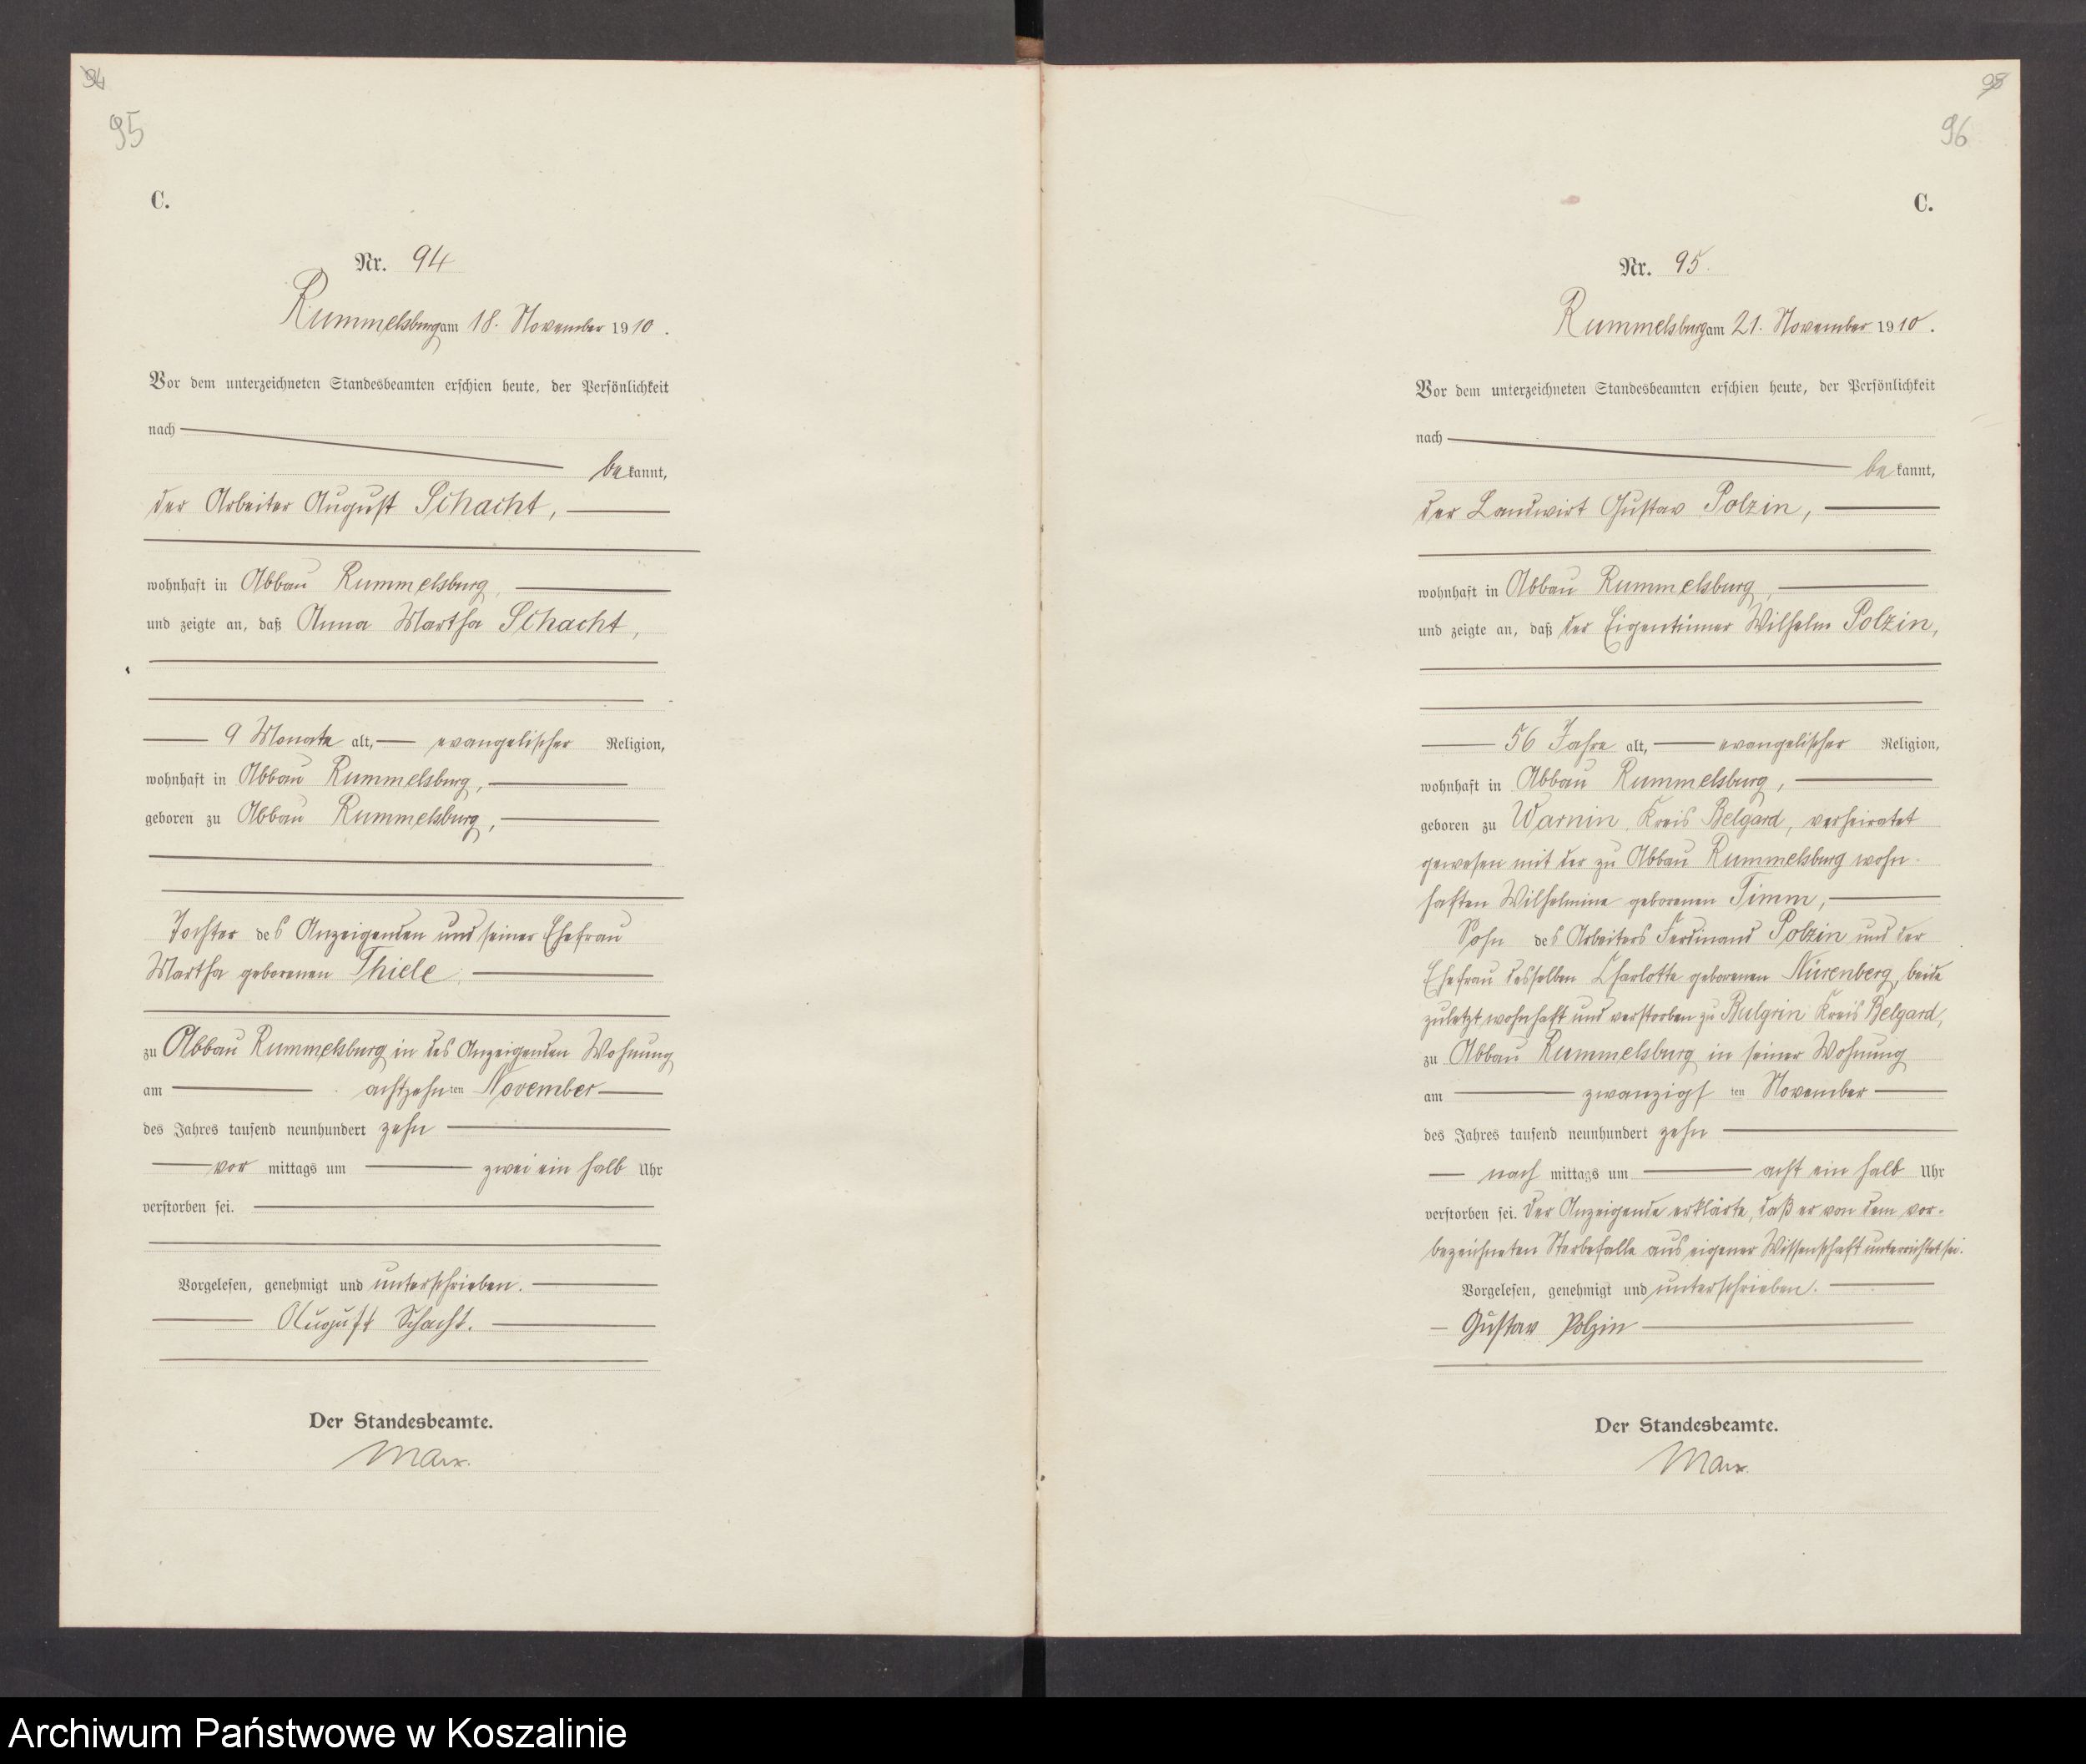 94
95
C.
Nr. 94
Rummelsburg am 18. November 1910.
Vor dem unterzeichneten Standesbeamten erschien heute, der Persönlichkeit
nach
bekannt,
der Arbeiter August Schacht,
wohnhaft in Abbau Rummelsburg,
und zeigte an, daß Anna Martha Schacht,
9 Monate alt, evangelischer Religion,
wohnhaft in Abbau Rummelsburg,
geboren zu Abbau Rummelsburg,
Tochter des Anzeigenden und seiner Ehefrau
Martha geborenen Thiele
zu Abbau Rummelsburg in des Anzeigenden Wohnung
am achtzehnten November
des Jahres tausend neunhundert zehn
vor mittags um zwei ein halb Uhr
verstorben sei.
Vorgelesen, genehmigt und unterschrieben.
August Schacht.
Der Standesbeamte.
Marx.
95
96
C.
Nr. 95.
Rummelsburg am 21. November 1910.
Vor dem unterzeichneten Standesbeamten erschien heute, der Persönlichkeit
nach
bekannt,
der Landwirt Gustav Polzin,
wohnhaft in Abbau Rummelsburg,
und zeigte an, daß der Eigentümer Wilhelm Polzin,
56 Jahre alt, evangelischer Religion,
wohnhaft in Abbau Rummelsburg,
geboren zu Warnin, Kreis Belgard, verheiratet
gewesen mit der zu Abbau Rummelsburg wohn-
haften Wilhelmine geborenen Timm,
Sohn des Arbeiters Ferdinand Polzin und der
Ehefrau desselben Charlotte geborenen Nürenberg, beide
zuletzt wohnhaft und verstorben zu Bulgrin Kreis Belgard,
zu Abbau Rummelsburg in seiner Wohnung
am zwanzigsten November
des Jahres tausend neunhundert zehn
nach mittags um acht ein halb Uhr
verstorben sei. Der Anzeigende erklärte, daß er von dem vor-
bezeichneten Sterbefalle aus eigener Wissenschaft unterrichtet sei.
Vorgelesen, genehmigt und unterschrieben.
Gustav Polzin
Der Standesbeamte.
Marx.
Archiwum Państwowe w Koszalinie